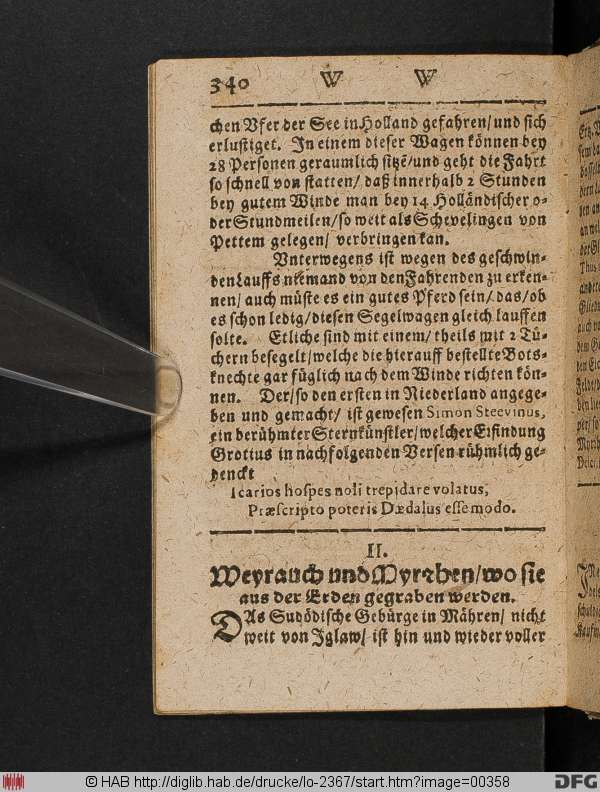 340 W W
chen Vfer der See in Holland gefahren/ und sich
erlustiget. In einem dieser Wagen können bey
28 Personen geraumlich sitzē/und geht die Fahrt
so schnell von statten/ daß innerhalb 2 Stunden
bey gutem Winde man bey 14 Holländischer o-
der Stundmeilen/so weit als Schevelingen von
Pettem gelegen/ verbringen kan.
Vnterwegens ist wegen des geschwin-
den Lauffs niemand von den Fahrenden zu erken-
nen/ auch müste es ein gutes Pferd sein/ das/ ob
es schon ledig/ diesen Segelwagen gleich lauffen
solte. Etliche sind mit einem/ theils mit 2 Tü-
chern besegelt/welche die hierauff bestellte Bots-
knechte gar füglich nach dem Winde richten kön-
nen. Der/so den ersten in Niederland angege-
ben und gemacht/ ist gewesen Simon Steevinus,
ein berühmter Sternkünstler/welcher Erfindung
Grotius in nachfolgenden Versen rühmlich ge-
denckt
Icarios hospes noli trepidare volatus,
Præscripto poteris Dædalus esse modo.
II.
Weyrauch und Myrrhen/wo sie
aus der Erden gegraben werden.
DAs Sudödische Gebürge in Mähren/ nicht
weit von Iglaw/ ist hin und wieder voller
© HAB http://diglib.hab.de/drucke/lo-2367/start.htm?image=00358
DFG